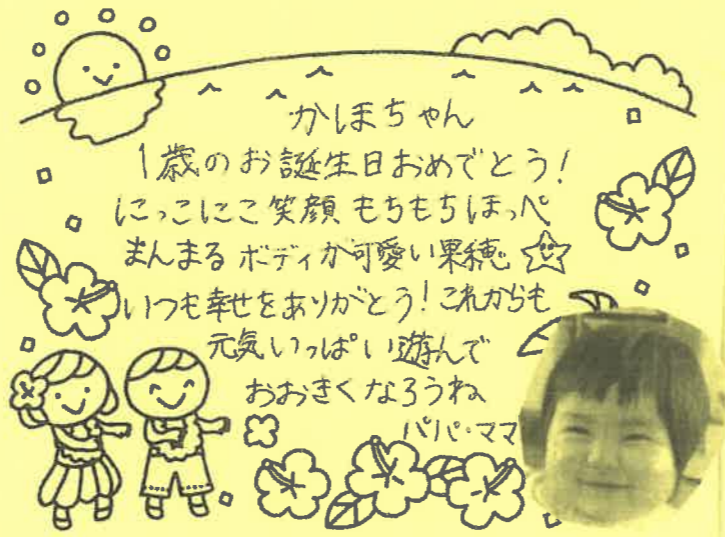 かほちゃん
1歳のお誕生日おめでとう!
にっこにこ笑顔 もちもちほっぺ
まんまるボディが可愛い果穂
いつも幸せをありがとう!これからも
元気いっぱい遊んで
おおきくなろうね
パパ・ママ